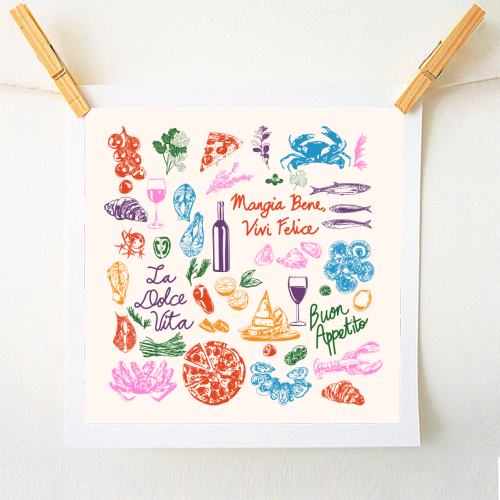 Mangia Bene,
Vivi Felice
La
Dolce
Vita
Buon
Appetito